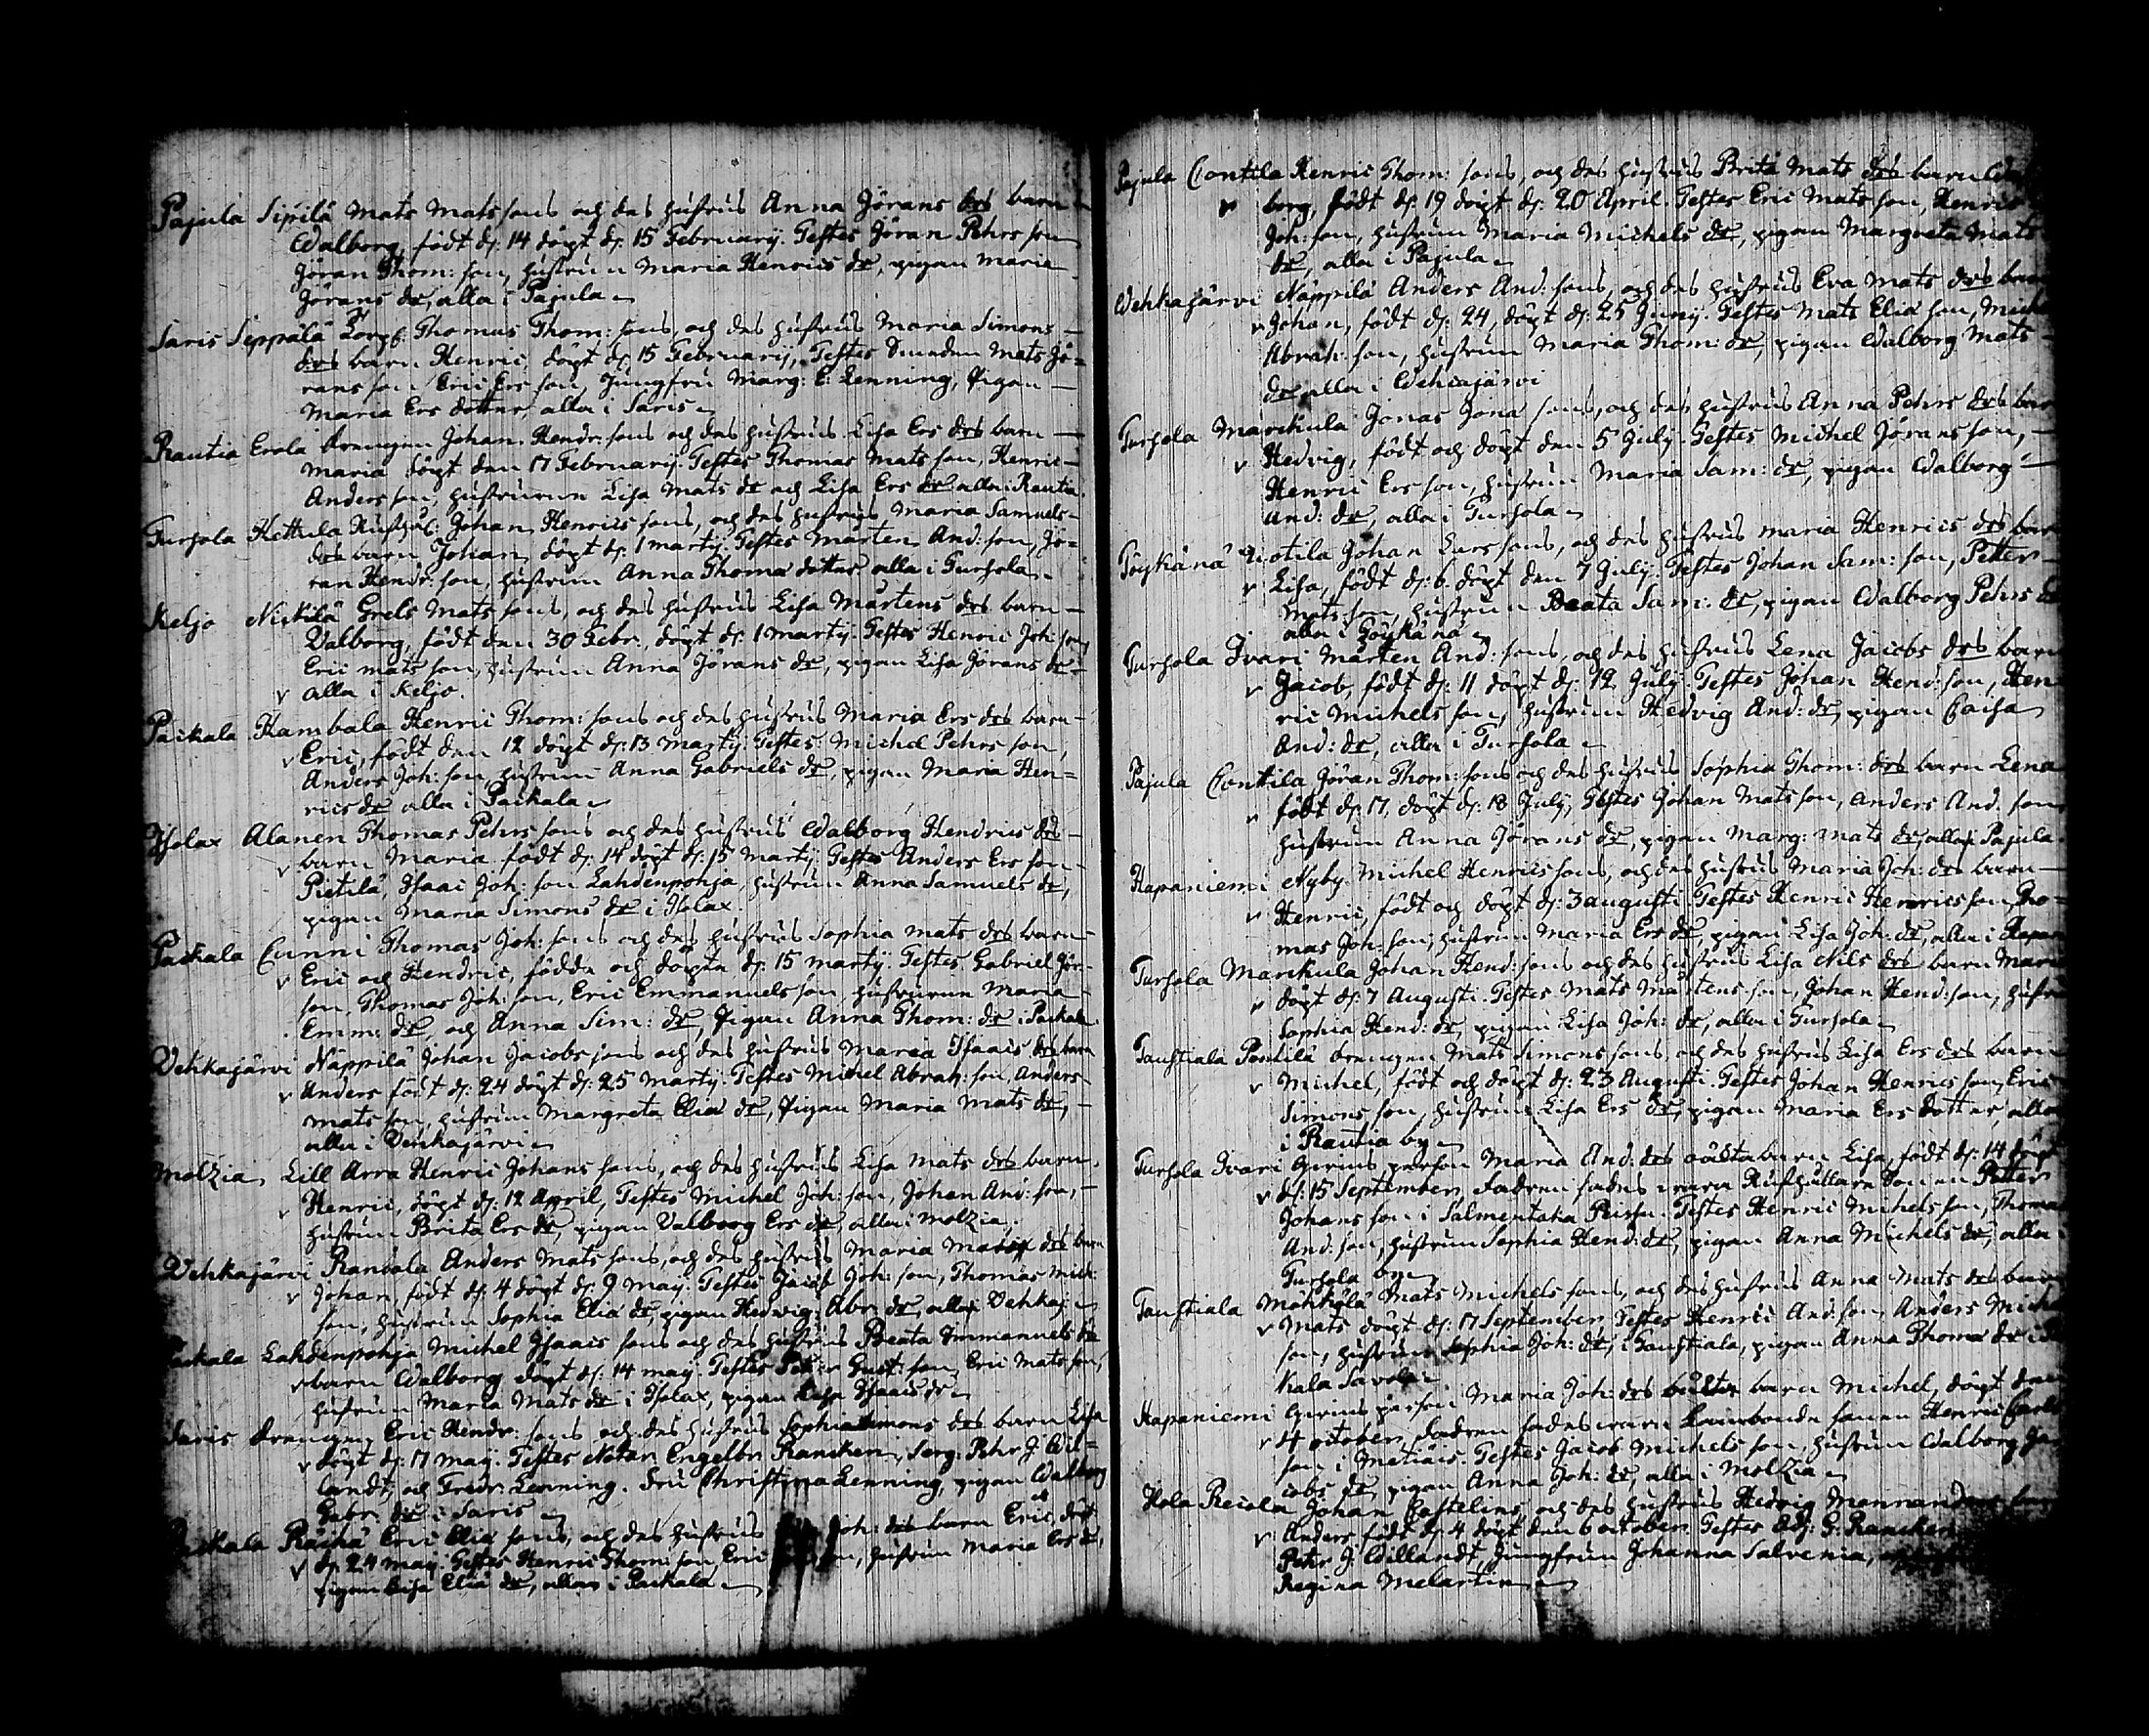 Pajula Sipilä Mats Mats sons och des hustrus Anna Jörans drs barn
Walborg, födt d: 14 döpt d: 15 February. Testes Jöran Pehrs son
Jöran Thom: son, hustrun Maria Henrics dr, pigan Maria
Jörans dr, alla i Pajula
Saris Seppälä Thomas Thom: sons, och des hustrus Maria Simons
drs barn Henric, döpt d: 15 February, Testes Mats Jö=
rans son Eric Ers son, Jungfru Marg: E: Lenning, Pigan
Maria Ers dotter, alla i Saris
Rautia Erola drengen Johan Hendr: sons och des hustrus Lisa Ers drs barn
Maria döpt den 17 February. Testes Thomas Mats son, Henric
Anders son, hustrurna Lisa Mats dr och Lisa Ers dr alla i Rautia
Tursola Hettula Johan Henrics sons, och des hustrus Maria Samuels
drs barn Johan, döpt d: 1 marty. Testes Mårten And: son, Jö=
ran Hendr: son, hustrun Anna Thoma dotter alla i Tursola
Keljo Niskilä Grels Mats sons, och des hustrus Lisa Mårtens drs barn
Valborg, födt den 30 Febr., döpt d: 1 marty. Testes Henric Joh: son
Eric Mats son, hustrun Anna Jörans dr, pigan Lisa Jörans dr
alla i Keljo.
Paikala Kambala Henric Thom: sons och des hustrus Maria Ers drs barn
Eric, födt den 12 döpt d: 13 marty. Testes: Michel Pehrs son,
Anders Joh: son, hustrun Anna Gabriels dr, pigan Maria Hen=
rics dr alla i Paikala
Isolax Alanen Thomas Pehrs sons och des hustrus Walborg Hendrics drs
barn Maria födt d: 14 döpt d: 15 marty. Testes Anders Ers son
Pietilä, Isaac Joh: son Lahdenpohja, hustrun Anna Samuels dr,
pigan Maria Simons dr i Isolax.
Paikala Cunni Thomas Joh: sons och des hustrus Sophia Mats drs barn
Eric och Hendric, födda och döpta d: 15 marty. Testes Gabriel Jör=
son, Thomas Joh: son, Eric Emmanuels son, hustrurna Maria
Emm: dr, och Anna Sim: dr, Pigan Anna Thom: dr i Paikala
Vehkajärvi Näppilä Johan Jacobs sons och des hustrus Maria Isaacs drs barn
Anders födt d: 24 döpt d: 25 marty. Testes Michel Abrah: son, Anders
Mats son, hustrun Margreta Elia dr, Pigan Maria Mats dr,
alla i Vehkajärvi
Molzia Lill Arra Henric Johans sons, och des hustrus Lisa Mats drs barn
Henric, döpt d: 12 April, Testes Michel Joh: son, Johan And: son,
hustrun Brita Ers dr, pigan Valborg Ers dr alla i Molzia.
Vehkajärvi Randala Anders Mats sons, och des hustrus Maria drs barn
Johan, födt d: 4 döpt d: 9 may. Testes Jacob Joh: son, Thomas Mich:
son, hustrun Sophia Elia dr, pigan Hedwig Abr: dr, alla i Vehkaj:
Paikala Lahdenpohja Michel Isaacs sons och des hustrus Beata Immanuels drs
barn Walborg döpt d: 14 may. Testes Gust: son, Eric Mats son,
hustrun Maria Mats dr i Isolax, pigan Lisa Isaacs dr
Saris drengen Eric Hendr: sons och des hustrus Sophia Simons drs barn Lisa
döpt d: 17 may. Testes Notar. Engelbr: Rancken, Serg: Pehr J: Wil=
landt, och Fredr: Lenning. Fru Christina Lenning, pigan Walborg
Gabr: dr i Saris
Paikala Räihä Eric Elia sons, och des hustrus Joh: drs barn Eric, döpt
d: 24 may. Testes Henric Thom: son, Eric hustrun Maria Ers dr,
pigan Lisa Elia dr, alla i Paikala
Pajula Contila Henric Thom: sons, och des hustrus Brita Mats drs barn Wal
borg, födt d: 19 döpt d: 20 April. Testes Eric Mats son, Henric
Joh: son, hustrun Maria Michels dr, pigan Margreta Mats
dr, alla i Pajula
Wehkajärvi Näppilä Anders And: sons, och des hustrus Eva Mats drs barn
Johan, födt d: 24, döpt d: 25 Juny. Testes Mats Elia son, Mich
Abrah: son, hustrun Maria Thom: dr, pigan Walborg Mats
dr, alla i Wehkajärvi
Tursola Marckula Jonas Jona sons, och des hustrus Anna Pehrs drs barn
Hedvig, födt och döpt den 5 July. Testes Michel Jörans son,
Henric Ers son, hustrun Maria Sam: dr, pigan Walborg
And: dr, alla i Tursola
Töykänä Uotila Johan Lars sons, och des hustrus Maria Henrics drs barn
Lisa, födt d: 6. döpt den 7 July. Testes Johan Sam: son, Petter
Mats son, hustrun Beata Sam: dr, pigan Walborg Pehrs dr
alla i Töykänä
Tursola Ivari Mårten And: sons, och des hustrus Lena Jacobs drs barn
Jacob, födt d: 11 döpt d: 12 July. Testes Johan Hend: son, Hen
ric Michels son, hustrun Hedvig And: dr, pigan Caisa
And: dr, alla i Tursola
Pajula Contila Jöran Thom: sons och des hustrus Sophia Thom: drs barn Lena
födt d: 17, döpt d: 18 July, Testes Johan Mats son, Anders And: son
hustrun Anna Jörans dr, pigan Marg: Mats dr, alla i Pajula.
Hapaniemi Nyby Michel Henrics sons, och des hustrus Maria Joh: drs barn
Henric, födt och döpt d: 3 augusti. Testes Henric Henrics son, Tho=
mas Joh: son, hustrun Maria Ers dr, pigan Lisa Joh: dr, alla i Hapan
Tursola Marckula Johan Hend: sons och des hustrus Lisa Nils drs barn Maria
döpt d: 7 Augusti. Testes Mats Mårtens son, Johan Hend: son, hustru
Sophia Hend: dr, pigan Lisa Joh: dr, alla i Tursola
Taustiala Pentilä drengen Mats Simons sons, och des hustrus Lisa Ers drs barn
Michel, födt och döpt d: 23 Augusti. Testes Johan Henrics son, Eric
Simons son, hustrun Lisa Ers dr, pigan Maria Ers dotter, alla
i Rautia by
Tursola Ivari Qvins person Maria And: drs oäckta barn Lisa, födt d: 14 döpt
d: 15 September, Fadren sades vara Rusthållare Sonen Petter
Johans son i Salmentaka Testes Henric Michels son, Thomas
And: son, hustrun Sophia Hend: dr, pigan Anna Michels dr, alla i
Tursola by
Taustiala Möhkälä Mats Michels sons, och des hustrus Anna Mats drs barn
Mats döpt d: 17 September, Testes Henric And: son, Anders Mich
son, hustrun Sophia Joh: dr, i Taustiala, pigan Anna Thoma dr i
kala Savola
Hapaniemi Qvins person Maria Joh: drs oäckta barn Michel, döpt den
4 october, Fadren sades vara sonen Henric Carls
son i Metiäis. Testes Jacob Michels son, hustrun Walborg Ja
cobs dr, pigan Anna Joh: dr, alla i Molzia
Hola Recola Johan Castelins, och des hustrus Hedvig
Anders födt d: 4 döpt den 6 october. Testes Adj: G: Rancken
Pehr J: Willandt, Jungfrun Johanna Salvenia,
Regina Melartin